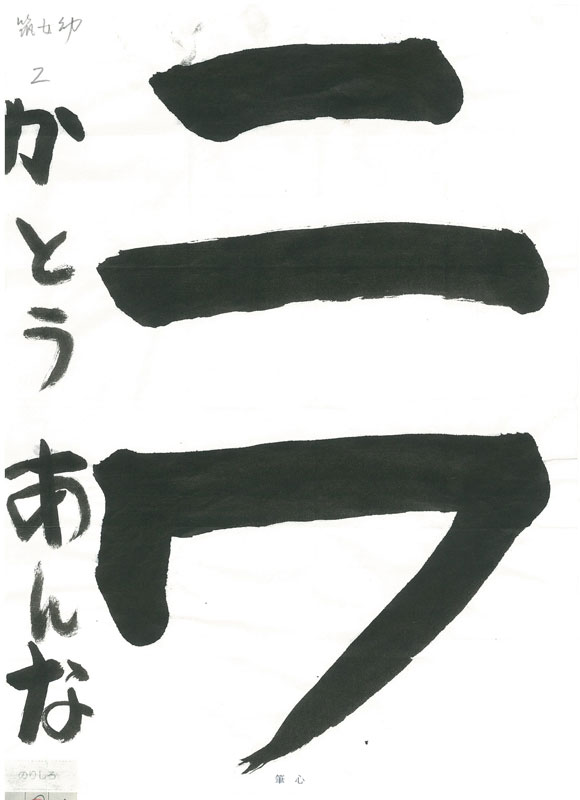 ニワ
筑女幼
2
かとう あんな
のりしろ
筆心